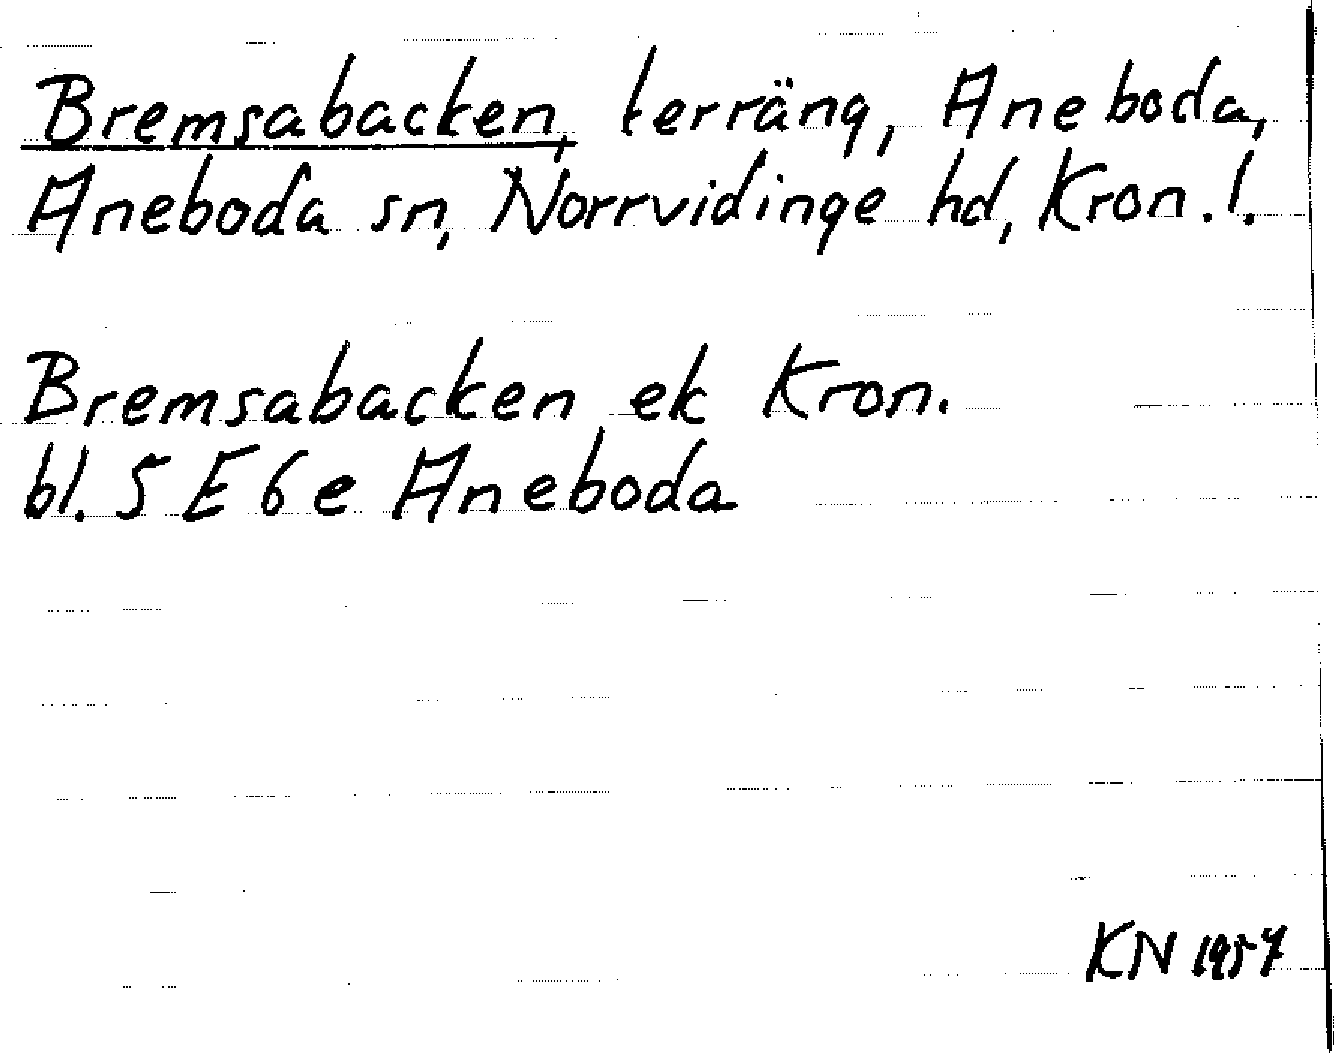 Bremsabacken, terräng, Aneboda,
Aneboda sn, Norrvidinge hd, Kron. l.
Bremsabacken ek Kron.
bl. 5 E 6 e Aneboda
KN 1957